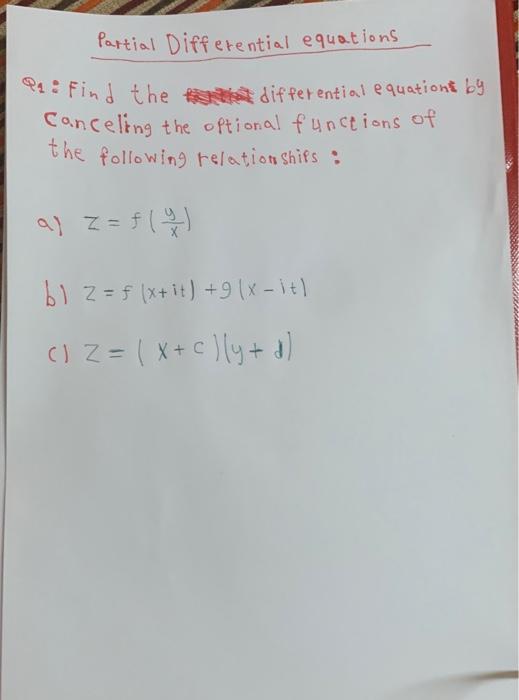 Partial Differential equations
Q1: Find the differential equations by
Canceling the optional functions of
the following relationships :
a) z = f(y/x)
b) z = f(x+it) + g(x-it)
c) z = (x+c)(y+d)